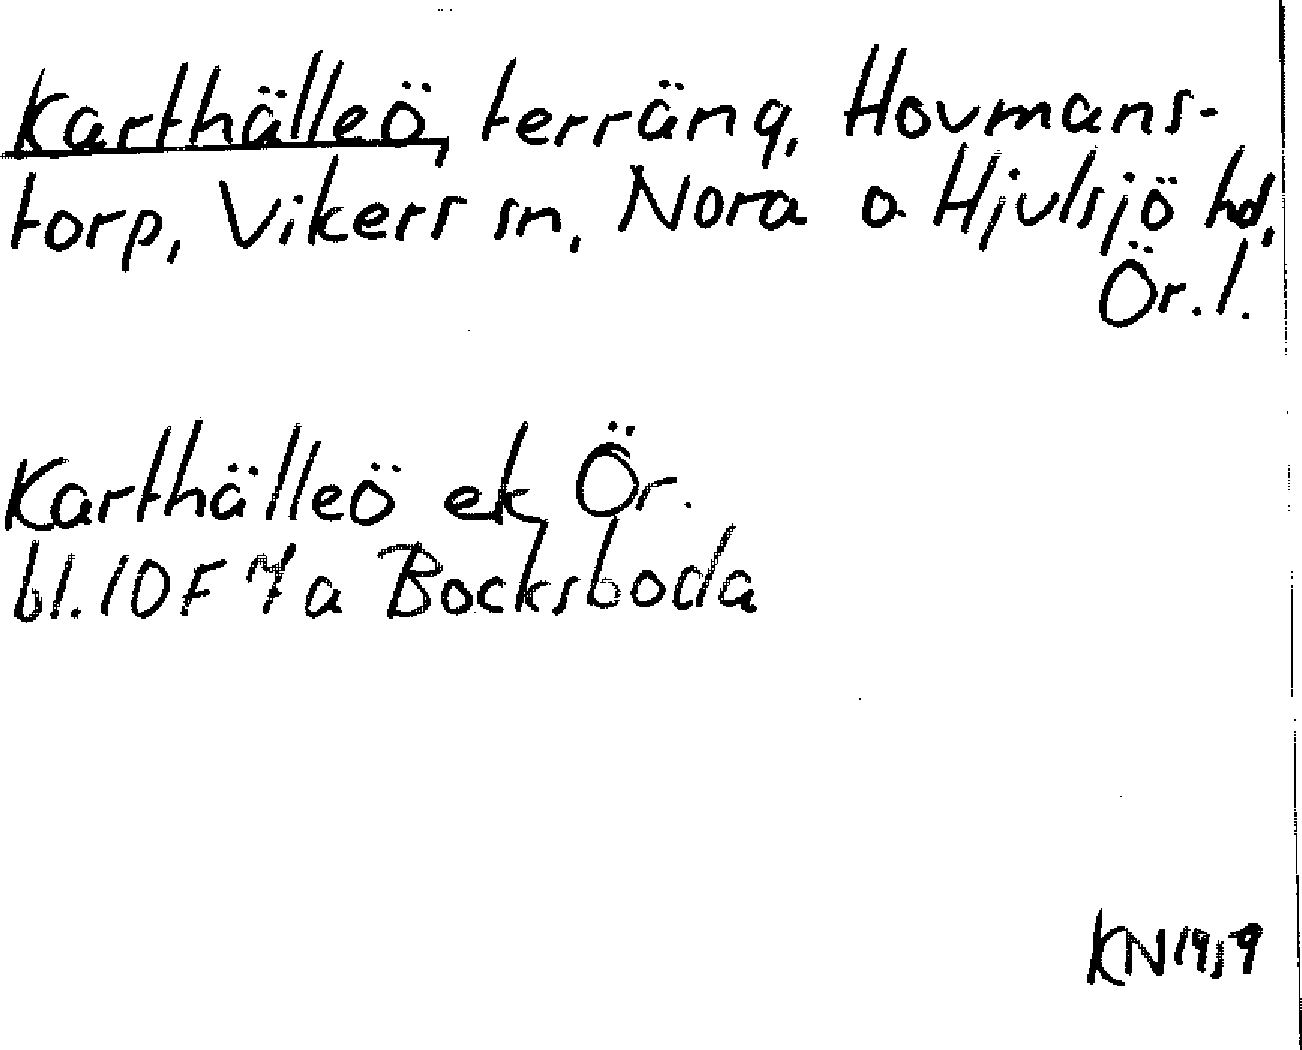 Karthälleö, terräng, Hovmans-
torp, Vikers sn, Nora o Hjulsjö hd,
Ör. l.
Karthälleö ek, Ör.
bl. 10F 7a Bocksboda